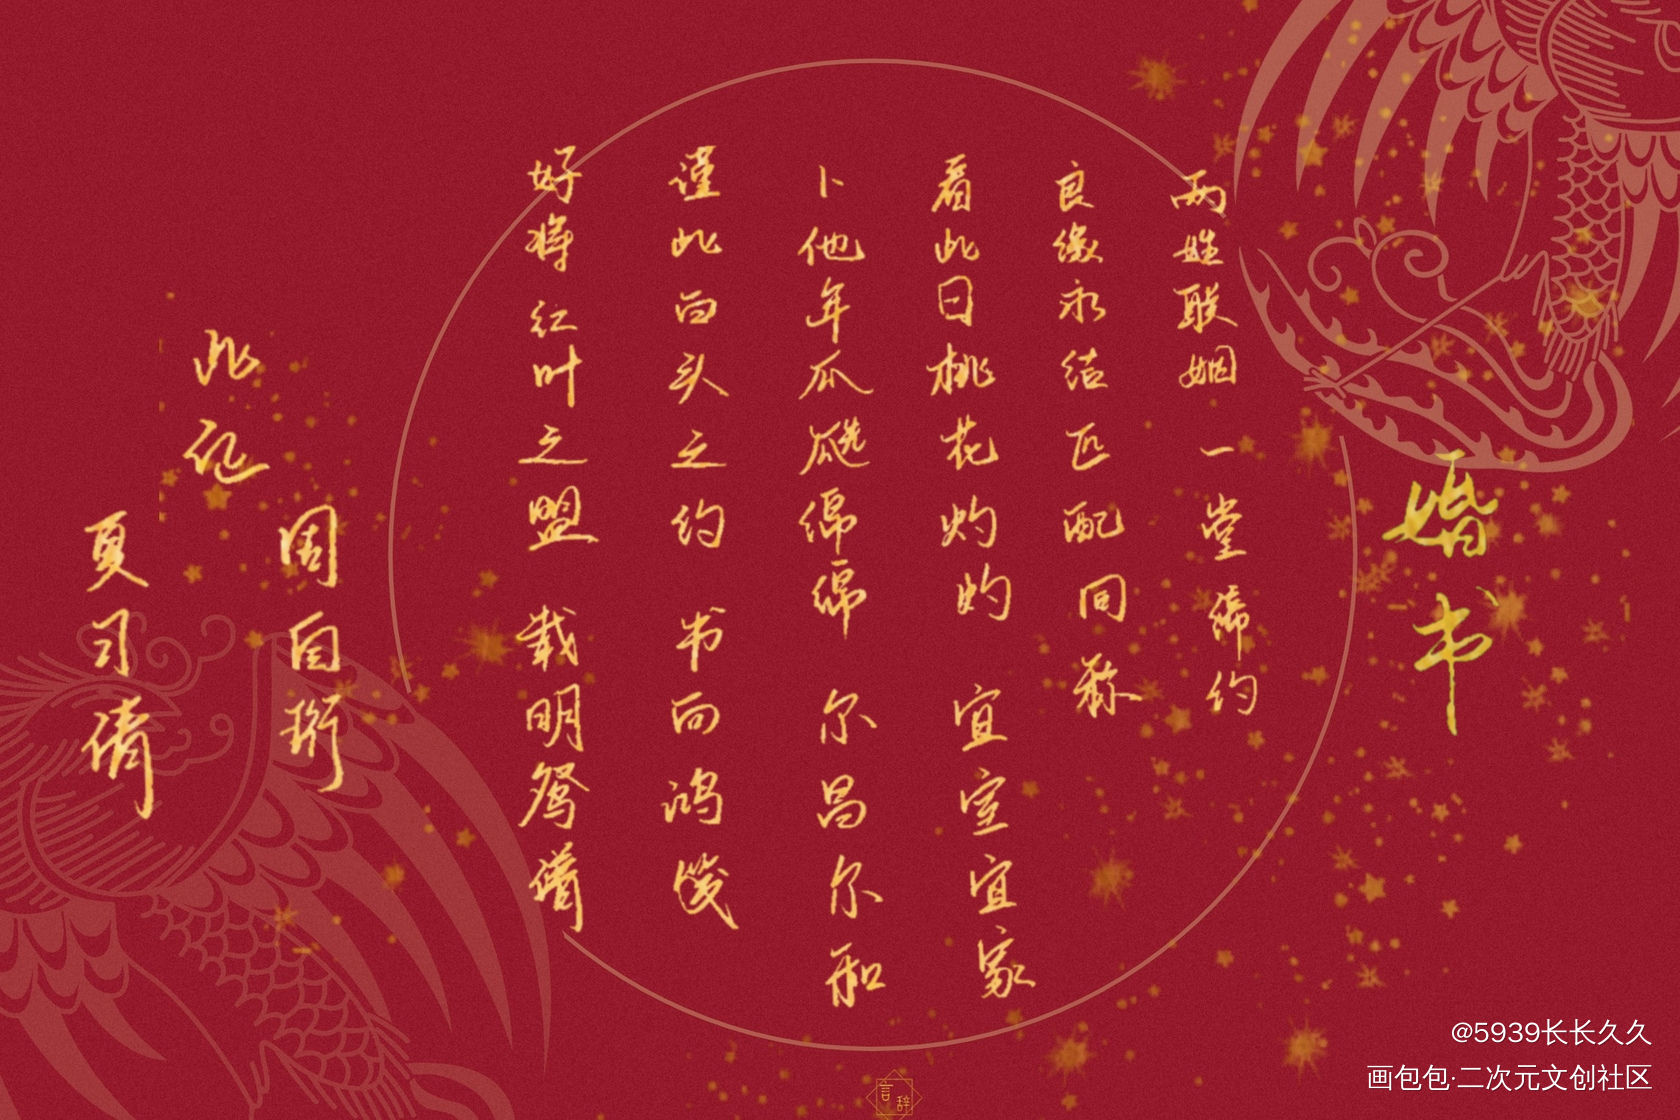 婚书
两姓联姻 一堂缔约
良缘永结 匹配同称
看此日桃花灼灼 宜室宜家
卜他年瓜瓞绵绵 尔昌尔和
谨此白头之约 书向鸿笺
好将红叶之盟 载明鸳谱
此证
周自珩
夏习清
言辞
@5939长长久久
画包包·二次元文创社区